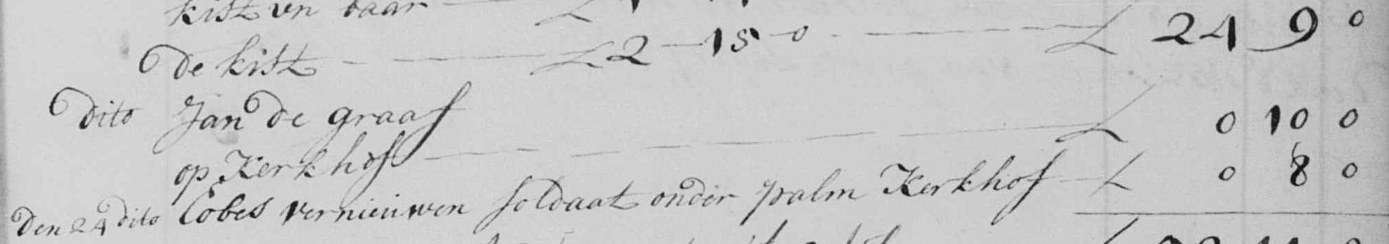 kist en baar
De kist £ 2 15 0 £ 24 9 0
dito Jan de graaf £ 0 10 0
op Kerkhof
Den 24 dito Cobes vernieuwen soldaat onder palm Kerkhof £ 0 8 0